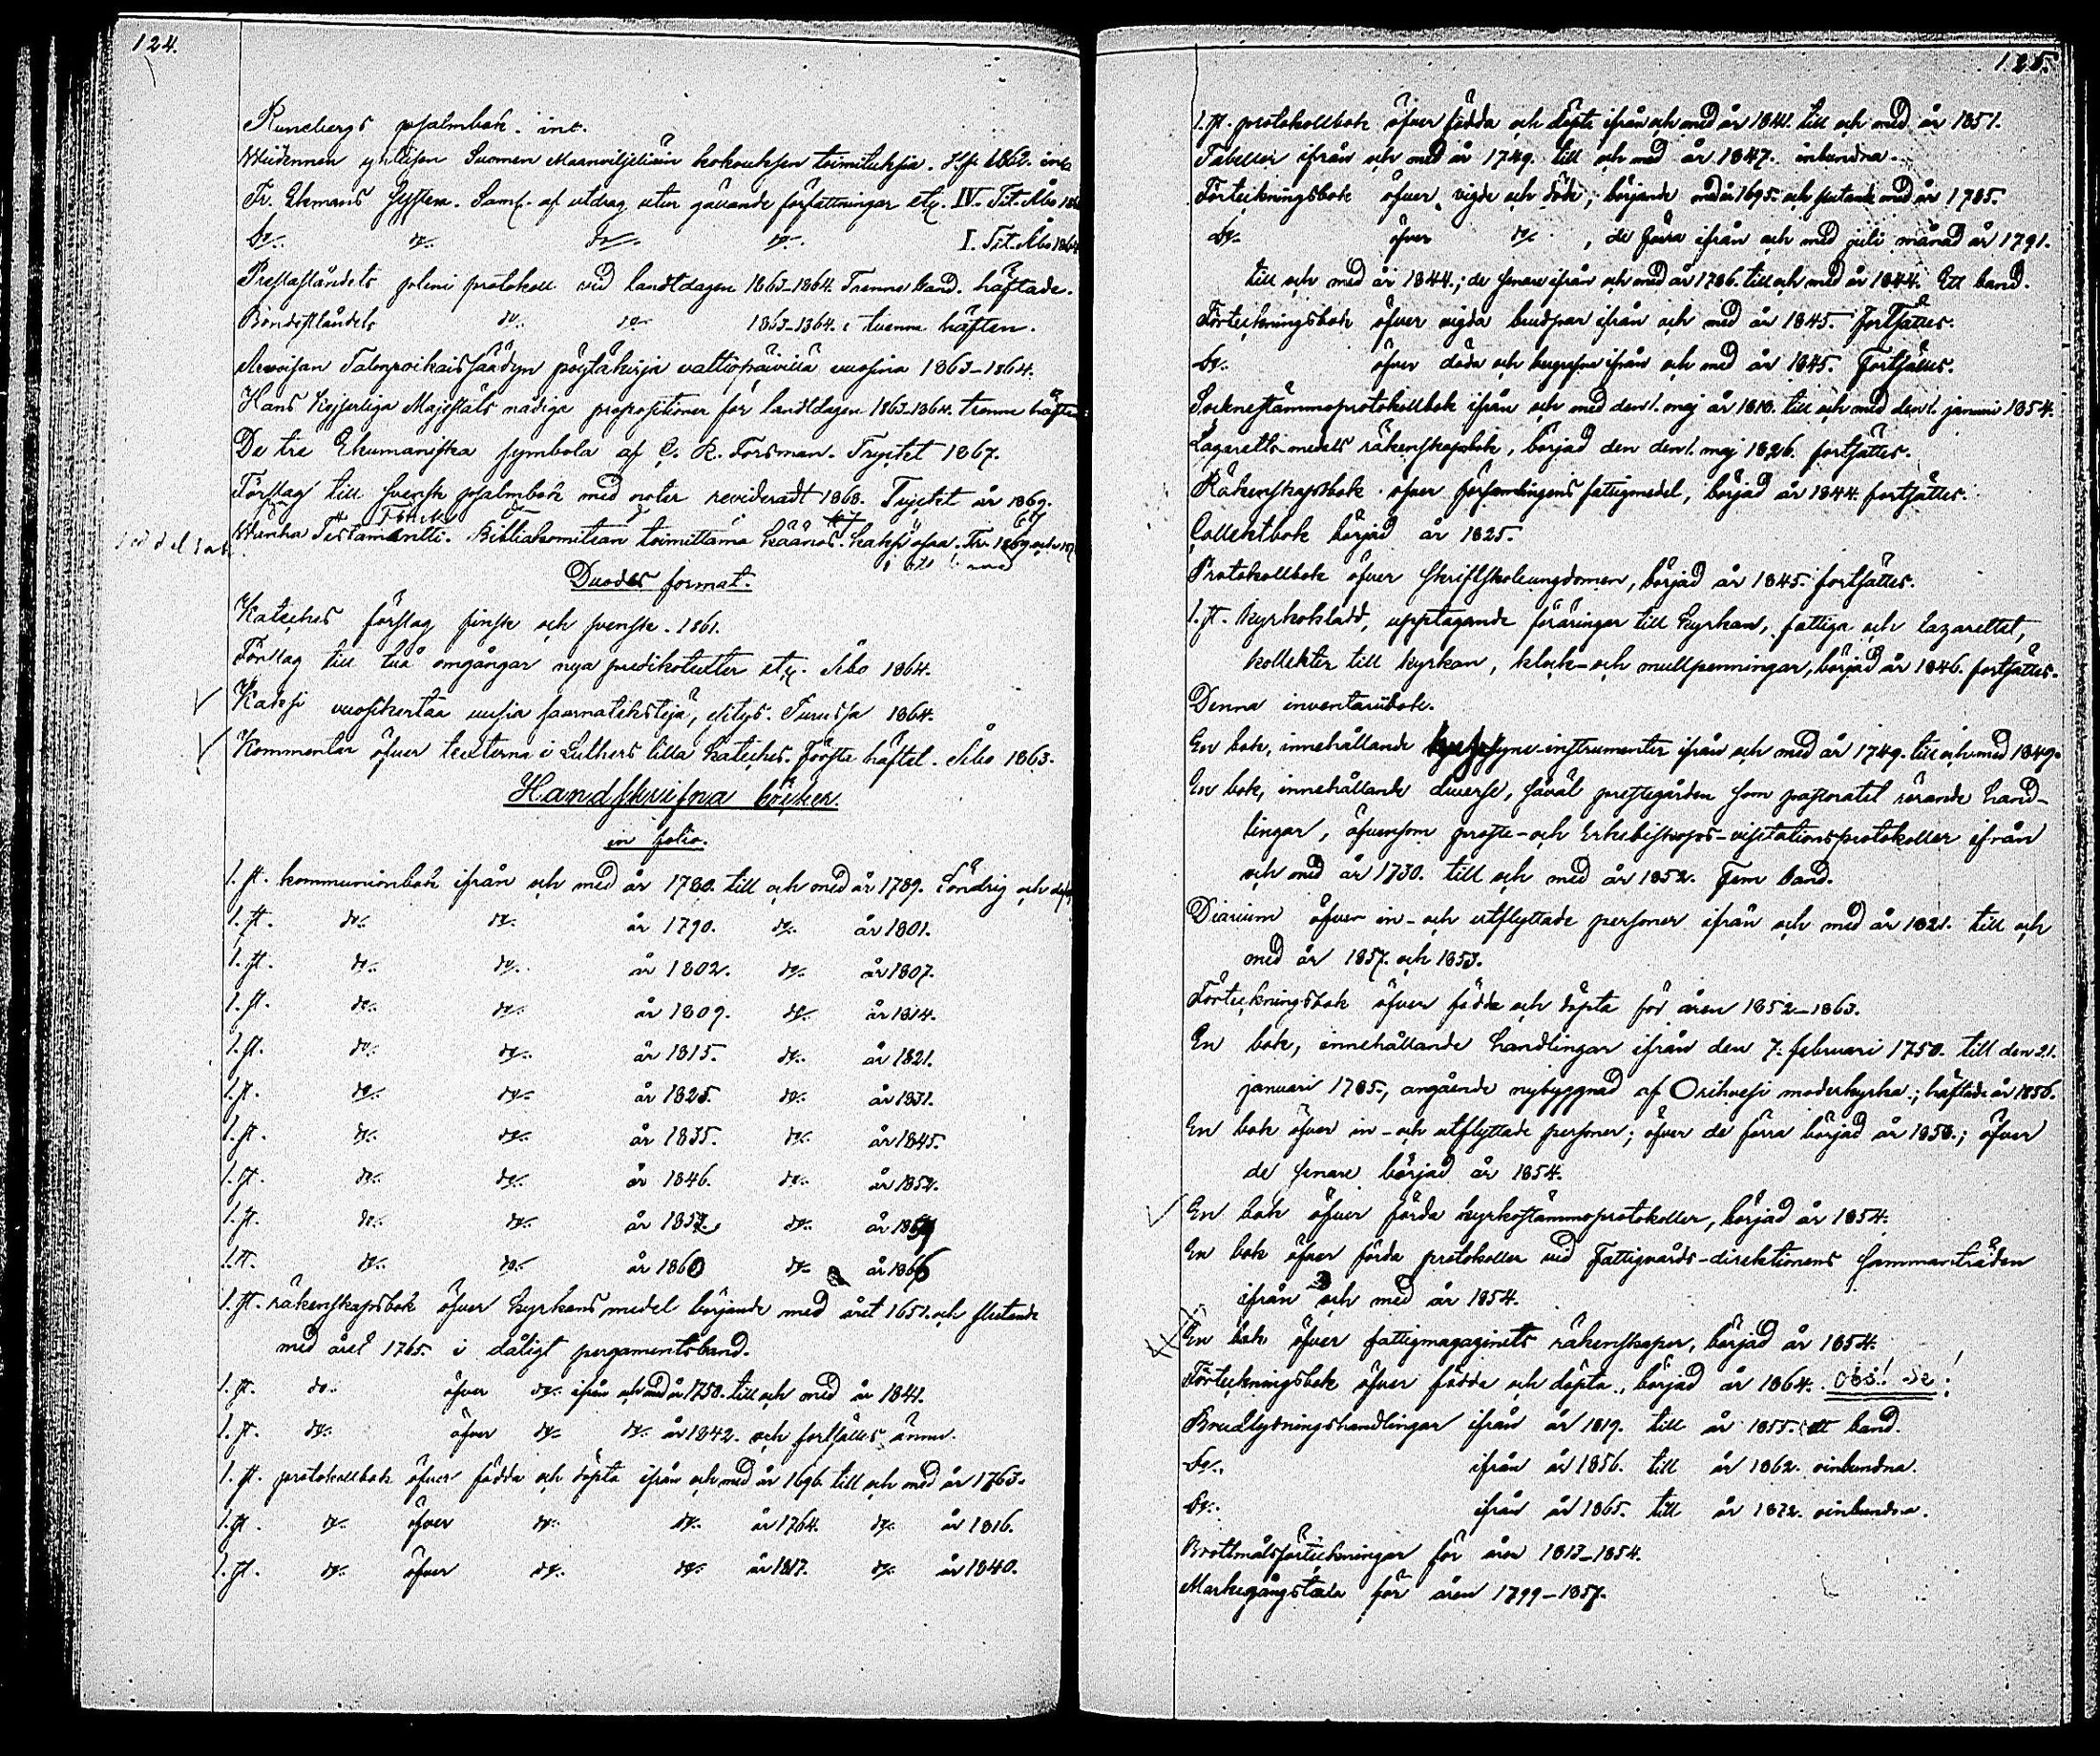 124.
Runebergs psalmbok. inb.
yhteisen Suomen Maanviljeliäin kokouksen toimituksia. Hfs. 1862. inb.
Fr. Ekmans System. Saml. af utdrag utur gällande författningar etc. IV. Tit. Åbo
Do. do. do. do. I. Tit. Åbo 1864
Presteståndets pleni protokoll vid landtdagen 1863-1864. Trenne band. häftade.
Bondeståndets do. do. 1863-1864. i tvenne häften.
Arvoisan Talonpoikaissäädyn pöytäkirja valtiopäivillä vuosina 1863-1864.
Hans Kejserliga Majestäts nådiga propositioner för landtdagen 1863-1864. trenne häften
De tre Ekumeniska symbola af C. R. Forsman. Tryckt 1867.
Förslag till Svensk psalmbok med noter revideradt 1868. Tryckt år 1869.
Wanha Testamentti. Bibliakomitean toimittama käännös. kaksi osaa. Tr. 1869
Duodes format.
Kateches förslag finsk och svensk. 1861.
Förslag till två omgångar nya predikotexter etc. Åbo 1864.
Kaksi vuosikertaa uusia saarnatekstejä, esitys. Turussa 1864.
Kommentar öfver texterna i Luthers lilla kateches. Första häftet. Åbo 1863.
Handskrifna böcker.
in folio.
1. st. kommunionbok ifrån och med år 1780. till och med år 1789. Söndrig och
1. st. do. do. år 1790. do. år 1801.
1. st. do. do. år 1802. do. år 1807.
1. st. do. do. år 1809. do. år 1814.
1. st. do. do. år 1815. do. år 1821.
1. st. do. do. år 1825. do. år 1831.
1. st. do. do. år 1835. do. år 1845.
1. st. do. do. år 1846. do. år 1852.
1. st. do. do. år 1852. do. år 1859
1. st. do. do. år 1860 do. år 1866
1. st. räkenskapsbok öfver kyrkans medel börjande med året 1651. och slutande
med året 1765. i dåligt pergamentsband.
1. st. do. öfver do. ifrån och med år 1750. till och med år 1841.
1. st. do. öfver do. do. år 1842. och fortsättes ännu.
1. st. protokollbok öfver födda och döpta ifrån och med år 1696. till och med år 1763.
1. st. do. öfver do. do. år 1764. do. år 1816.
1. st. do. öfver do. do. år 1817. do. år 1840.
125.
1. st. protokollbok öfver födda och döpta ifrån och med år 1841. till och med år 1851.
Tabeller ifrån och med år 1749. till och med år 1847. inbundna.
Förteckningsbok öfver vigde och döde; börjande med år 1695. och slutande med år 1785.
Do. öfver do., de förra ifrån och med juli månad år 1791.
till och med år 1844.; de senare ifrån och med år 1786. till och med år 1844. Ett band.
Förteckningsbok öfver vigda brudpar ifrån och med år 1845. fortsättes.
Do. öfver döda och begrafna ifrån och med år 1845. Fortsättes.
Sockenstämmoprotokollbok ifrån och med den 1. maj år 1810. till och med den 1. januari 1854.
Lazaretts-medels räkenskapsbok, börjad den den 1. maj 1826. fortsättes.
Räkenskapsbok öfver församlingens fattigmedel, börjad år 1844. fortsättes.
Collektbok börjad år 1825.
Protokollbok öfver skriftskoleungdomen, börjad år 1845. fortsättes.
1. st. kyrkokladd, upptagande föräringar till kyrkan, fattiga och lazarettet,
kollekter till kyrkan, klock- och mullpenningar, börjad år 1846. fortsättes.
Denna inventariibok.
En bok, innehållande syne-instrumenter ifrån och med år 1749. till och med 1849.
En bok, innehållande diverse, såväl prestegården som pastoratet rörande hand-
lingar, äfvensom proste- och Erkebiskops-visitationsprotokoller ifrån
och med år 1730. till och med år 1852. Fem band.
Diarium öfver in- och utflyttade personer ifrån och med år 1821. till och
med år 1857. och 1853.
Förteckningsbok öfver födda och döpta för åren 1852-1863.
En bok, innehållande handlingar ifrån den 7. februari 1750. till den 21.
januari 1785., angående nybyggnad af Orihvesi moderkyrka.; häftade år 1856.
En bok öfver in- och utflyttade personer; öfver de förra börjad år 1858.; öfver
de senare börjad år 1854.
En bok öfver förda kyrkostämmoprotokoller, börjad år 1854.
En bok öfver förda protokoller vid Fattigvårds-direktionens sammanträden
ifrån och med år 1854.
En bok öfver fattigmagazinets räkenskaper, börjad år 1854.
Förteckningsbok öfver födda och döpta, börjad år 1864. Obs! Se!
Brudlysningshandlingar ifrån år 1819. till år 1855. ett band.
Do. ifrån år 1856. till år 1862. oinbundna.
Do. ifrån år 1865. till år 1872. oinbundna.
Brottmålsförteckningar för åren 1813-1854.
Markegångstaxa för åren 1799-1857.